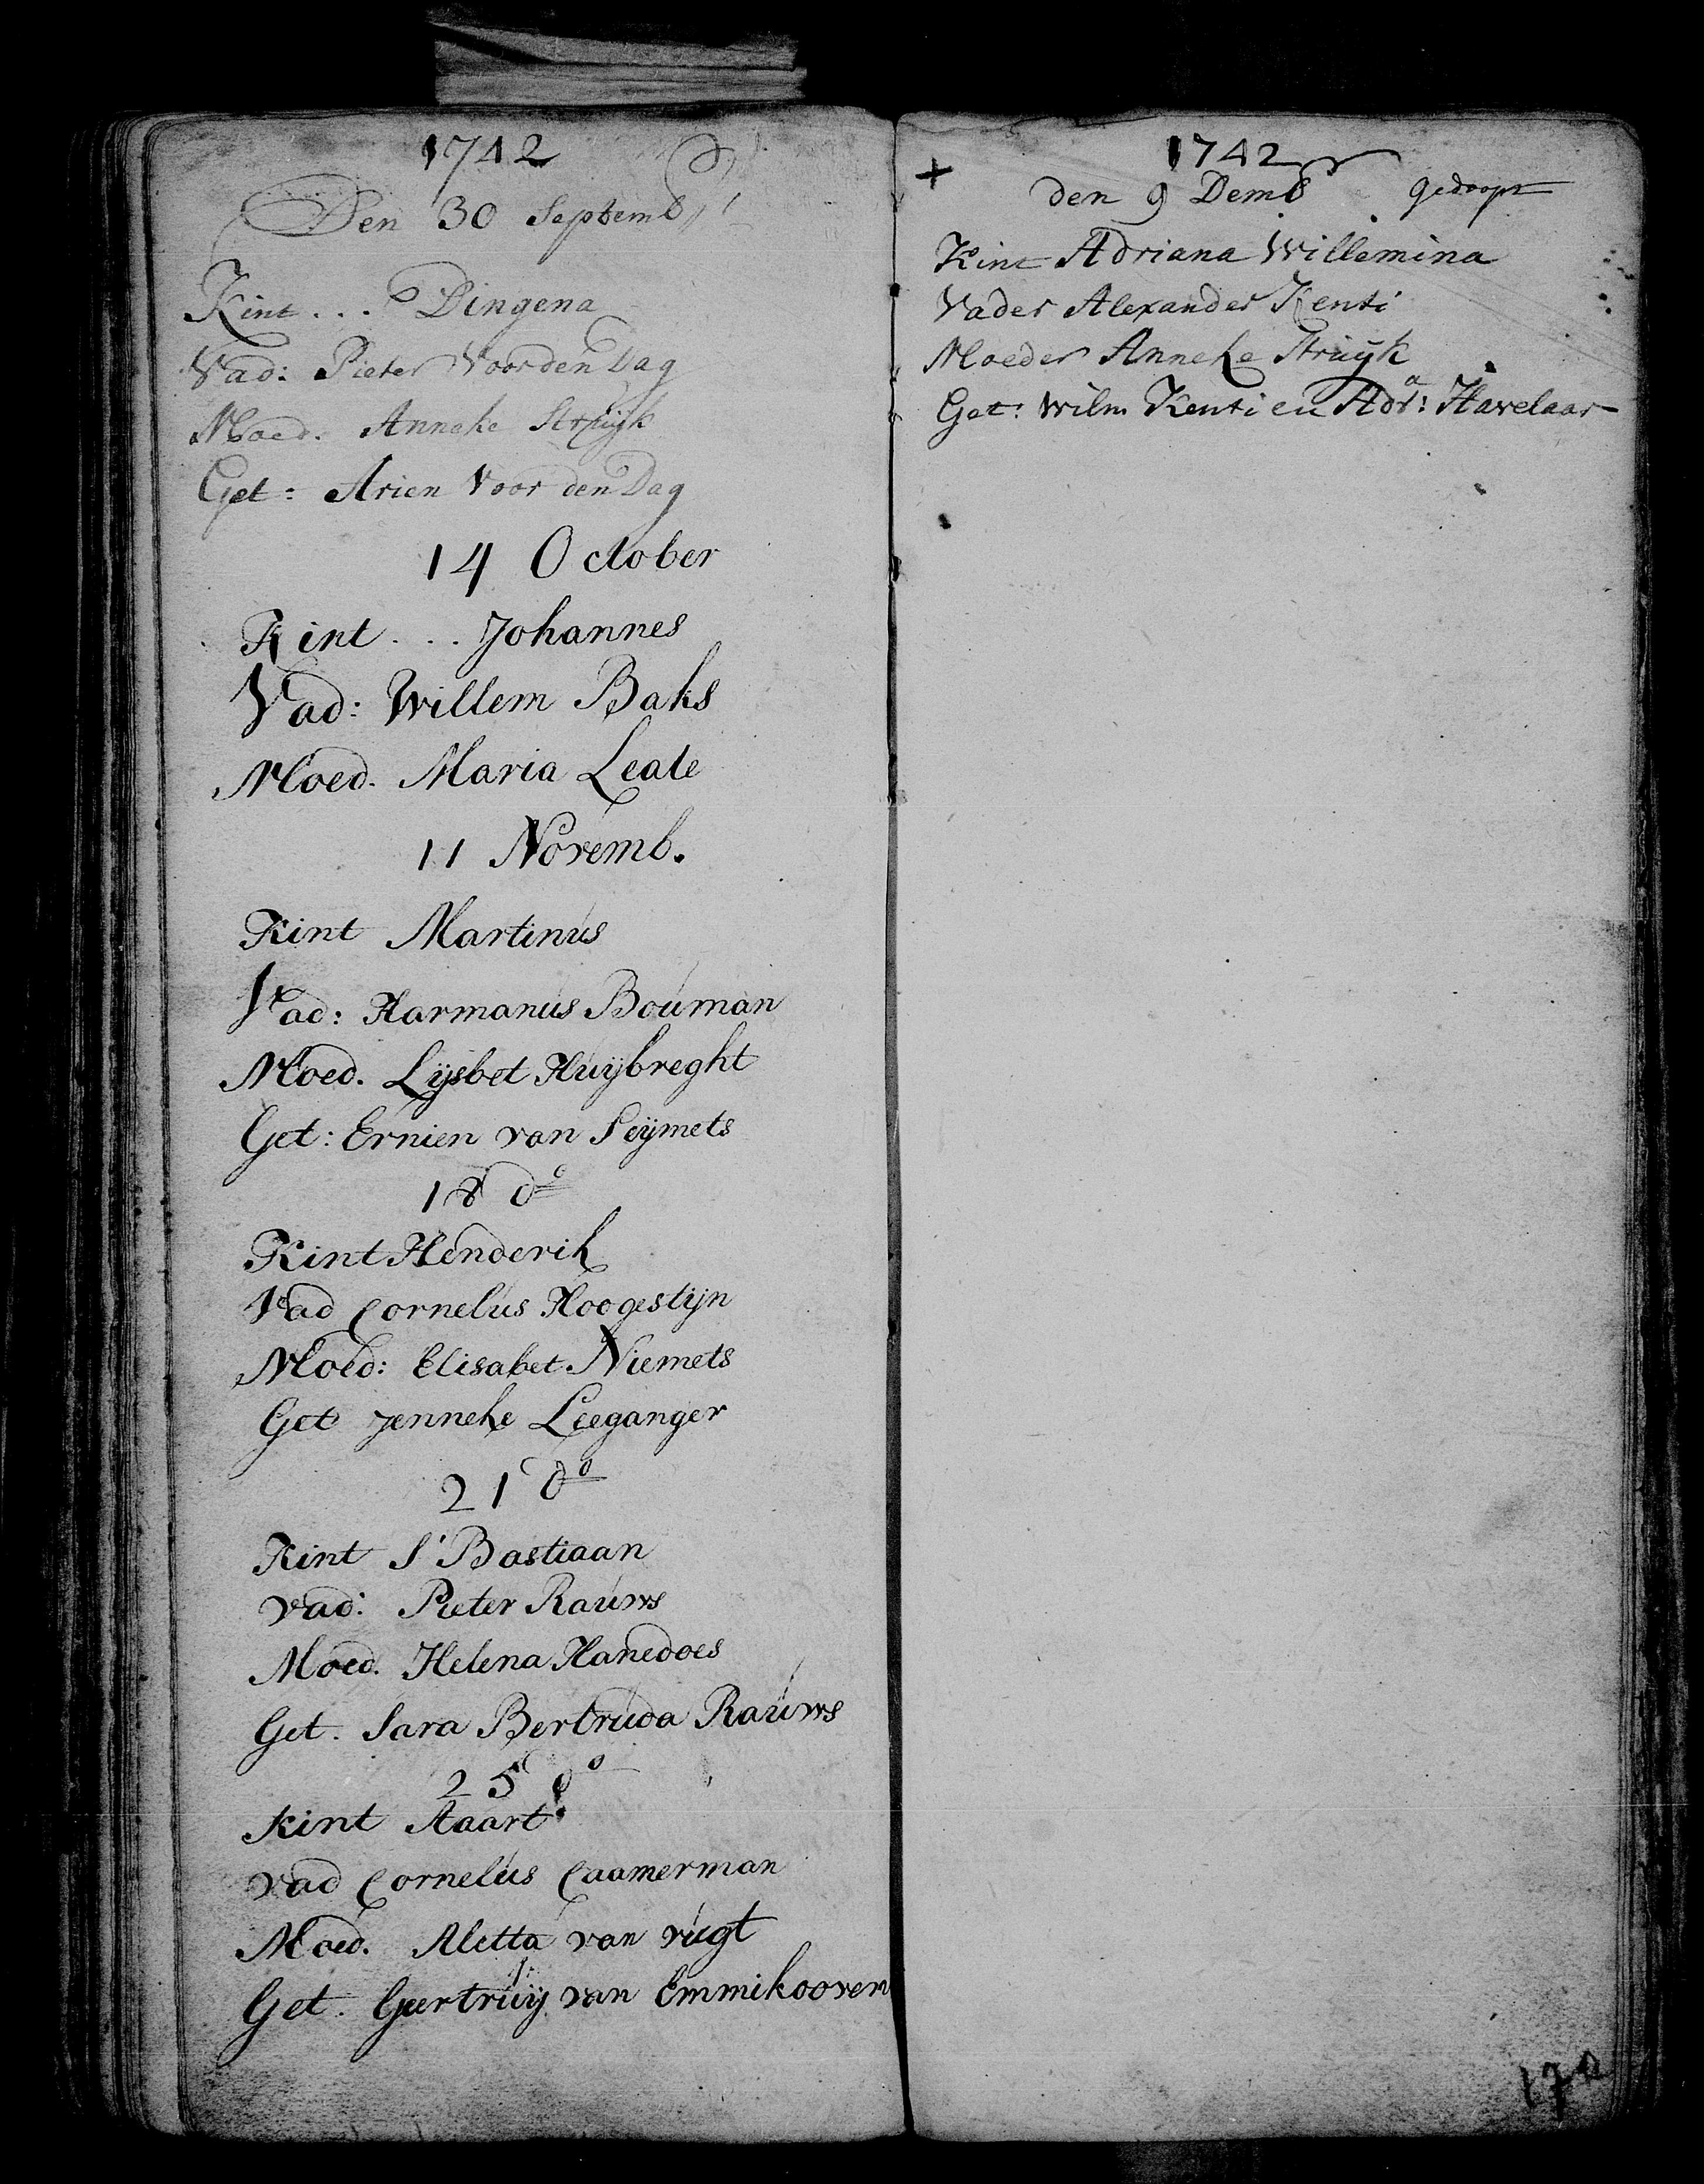 1742
Den 30 Septemb
Kint ... Dingena
Vad: Pieter Voorden Dag
Moed. Anneke Struijk
Get: Arien Voor den Dag
14 October
Kint ... Johannes
Vad: Willem Baks
Moed. Maria Leate
11 Novemb.
Kint Martinus
Vad: Harmanus Bouman
Moed. Lijsbet Huijbreght
Get: Ernien van Seijmets
18 do
Kint Henderik
Vad Cornelus Hoogestijn
Moed: Elisabet Niemets
Get Jenneke Leeganger
21 do
Kint S'Bastiaan
vad: Pieter Rauws
Moed. Helena Hanedoes
Get. Sara Bertruda Rauws
25 do
Kint Aaart
vad Cornelus Caamerman
Moed. Aletta van vugt
Get. Geertruij van Emmikooven
1742
+ den 9 Demb gedoopt
Kint Adriana Willemina
Vader Alexander Kenti
Moeder Anneke Struijk
Get: Wilm Kenti en Adra: Havelaar